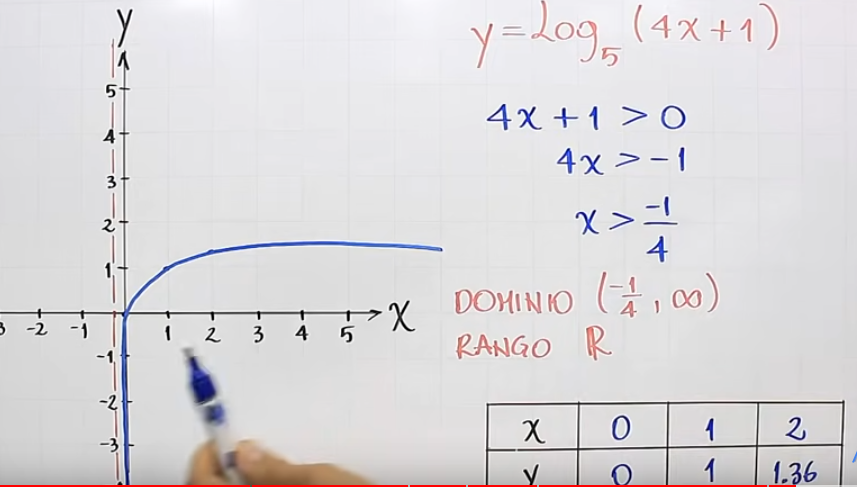 y
5
4
3
2
1
3 -2 -1 1 2 3 4 5 x
-1
-2
-3
y=Log₅(4x+1)
4x+1>0
4x>-1
x>-1/4
DOMINIO (-1/4, ∞)
RANGO ℝ
x 0 1 2
y 0 1 1.36